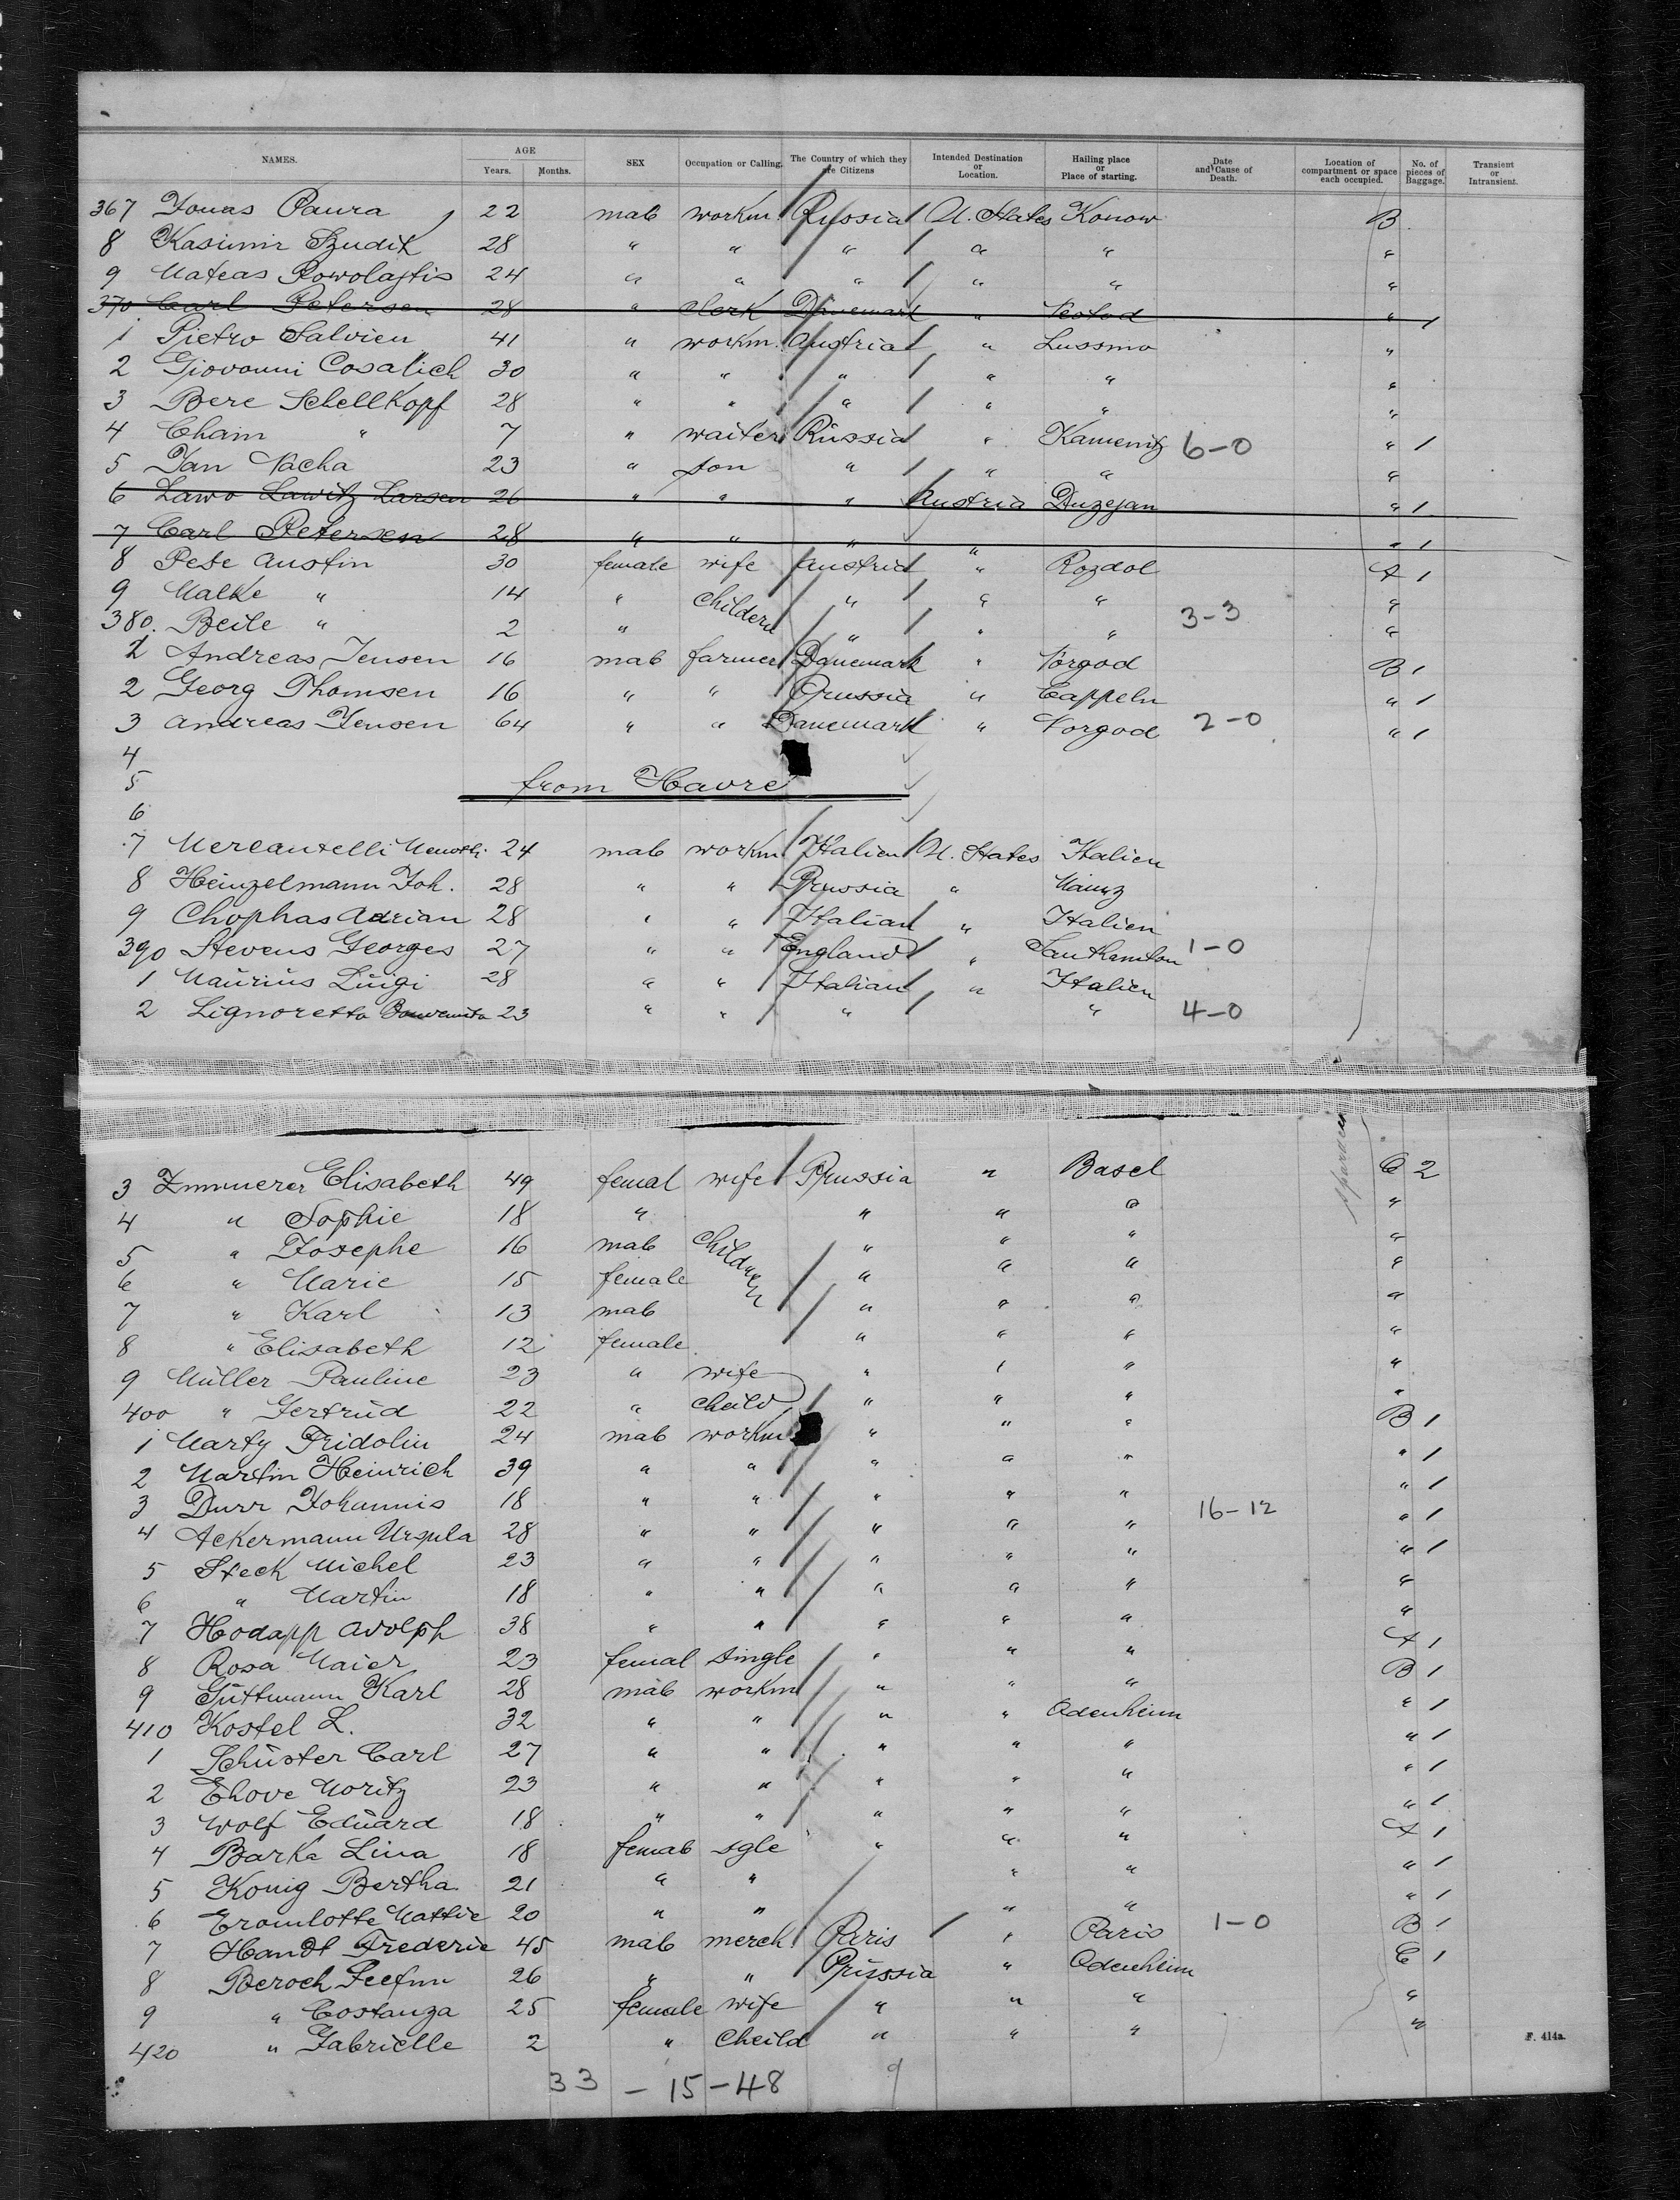 NAMES. AGE Years. Months. SEX Occupation or Calling. The Country of which they are Citizens Intended Destination or Location. Hailing place or Place of starting. Date and Cause of Death. Location of compartment or space each occupied. No. of pieces of Baggage. Transient or Intransient.
367 Jonas Paura 22 male workm. Russia U. States Konow B
8 Kasimir Szudik 28 " " " " " "
9 Mateas Rowolajtis 24 " " " " " "
370 Carl Petersen 28 " clerk Dänemark " " 1
1 Pietro Salvien 41 " workm. Austria " Lussmo "
2 Giovanni Cosalich 30 " " " " " "
3 Bere Schellkopf 28 " " " " " "
4 Chaim " 7 " waiter Russia " Kamenitz 6-0 " 1
5 Jan Vacha 23 " son " " " "
6 Lawo Lawitz Larsen 26 " " " Austria Duzejan " 1
7 Carl Petersen 28 " " " " " 1
8 Pese Austin 30 female wife Austria " Rozdol A 1
9 Malke " 14 " Childern " " " "
380. Beile " 2 " " " " 3-3 "
1 Andreas Jensen 16 male farmer Danemark " Vorgod B 1
2 Georg Thomsen 16 " " Prussia " Cappeln " 1
3 Andreas Jensen 64 " " Danemark " Vorgod 2-0 " 1
4
5 from Havre
6
7 Mercantelli 24 male workm Italien U. States Italien
8 Heinzelmann Joh. 28 " " Prussia " Mainz
9 Chophas Adrian 28 " " Italian " Italien
390 Stevens Georges 27 " " England " Sauthamton 1-0
1 Maurius Luigi 28 " " Italian " Italien
2 Lignoretto 23 " " " " 4-0
3 Zimmerer Elisabeth 49 femal wife Prussia " Basel C 2
4 " Sophie 18 " " " " "
5 " Josephe 16 male Children " " " "
6 " Marie 15 female " " " "
7 " Karl 13 male " " " "
8 " Elisabeth 12 female " " " "
9 Müller Pauline 23 " wife " " " "
400 " Gertrud 22 " Cheild " " " "
1 Marty Fridolin 24 male workm " " " B 1
2 Martin Heinrich 39 " " " " " " 1
3 Durr Johannis 18 " " " " " 16-12 " 1
4 Ackermann Ursula 28 " " " " " " 1
5 Steck Michel 23 " " " " " " 1
6 " Martin 18 " " " " " "
7 Hodapp Adolph 38 " " " " " "
8 Rosa Maier 23 femal single " " " A 1
9 Guttmann Karl 28 male workm " " " B 1
410 Kostel L. 32 " " " " Odenheim " 1
1 Schuster Carl 27 " " " " " " 1
2 Ehove Moritz 23 " " " " " " 1
3 Wolf Eduard 18 " " " " " " 1
4 Barka Lina 18 female sgle " " " A 1
5 Konig Bertha 21 " " " " " 1
6 Eromlotte Mattie 20 " " " " " 1
7 Handt Frederic 45 male merch Paris " Paris 1-0 B 1
8 Beroch 26 " " Prussia " Odenheim C 1
9 " Costanza 25 female wife " " " "
420 " Gabrielle 2 " Cheild " " " "
F. 414a.
33 - 15 - 48